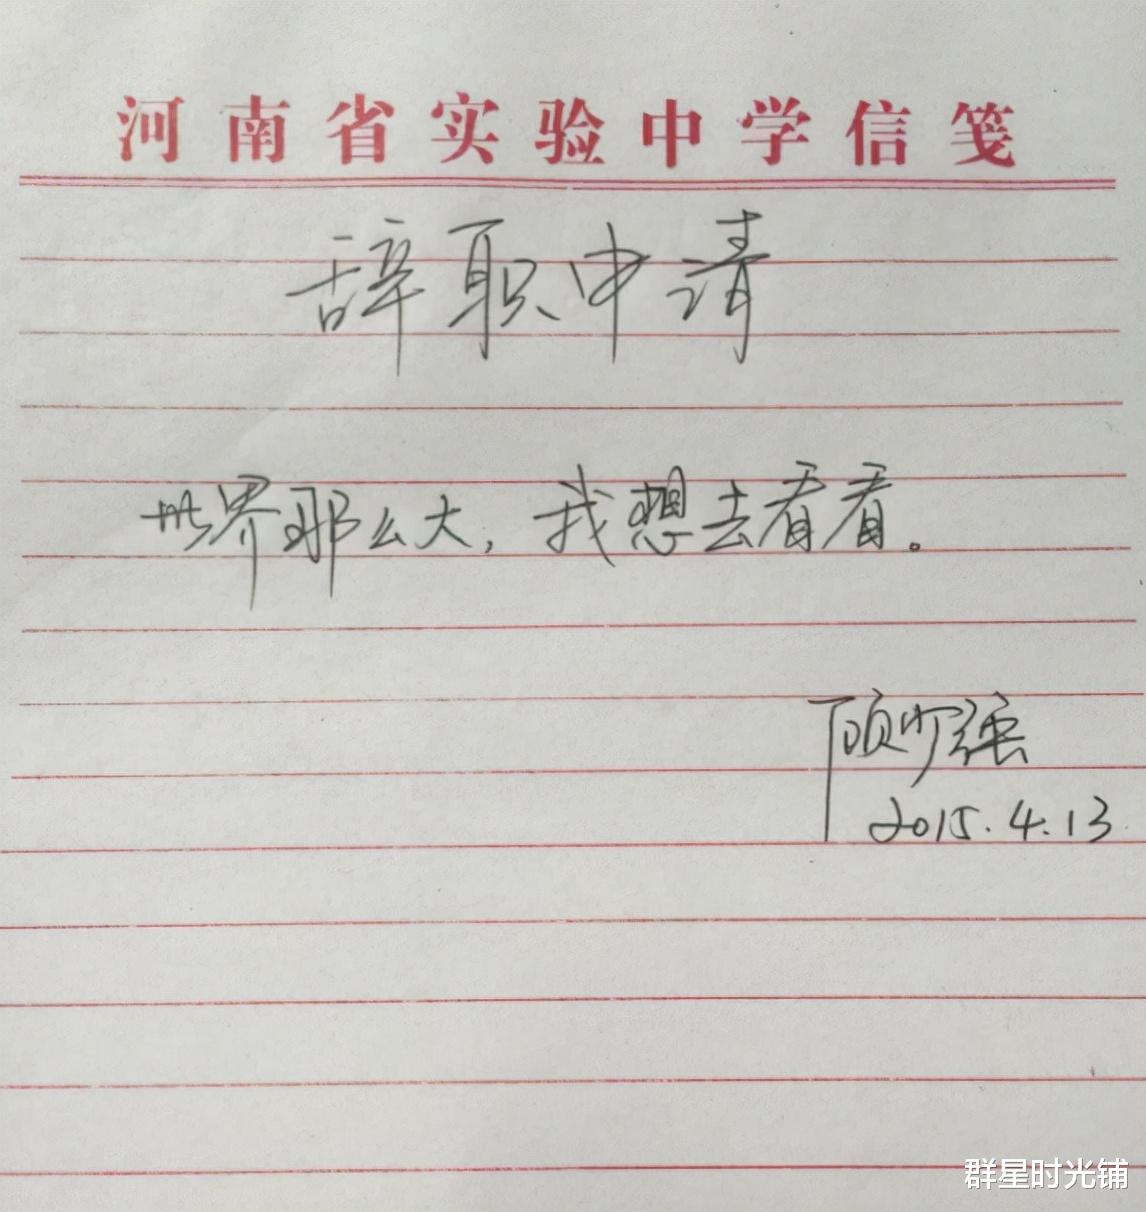 河南省实验中学信笺
辞职申请
世界那么大，我想去看看。
顾少强
2015.4.13
群星时光铺